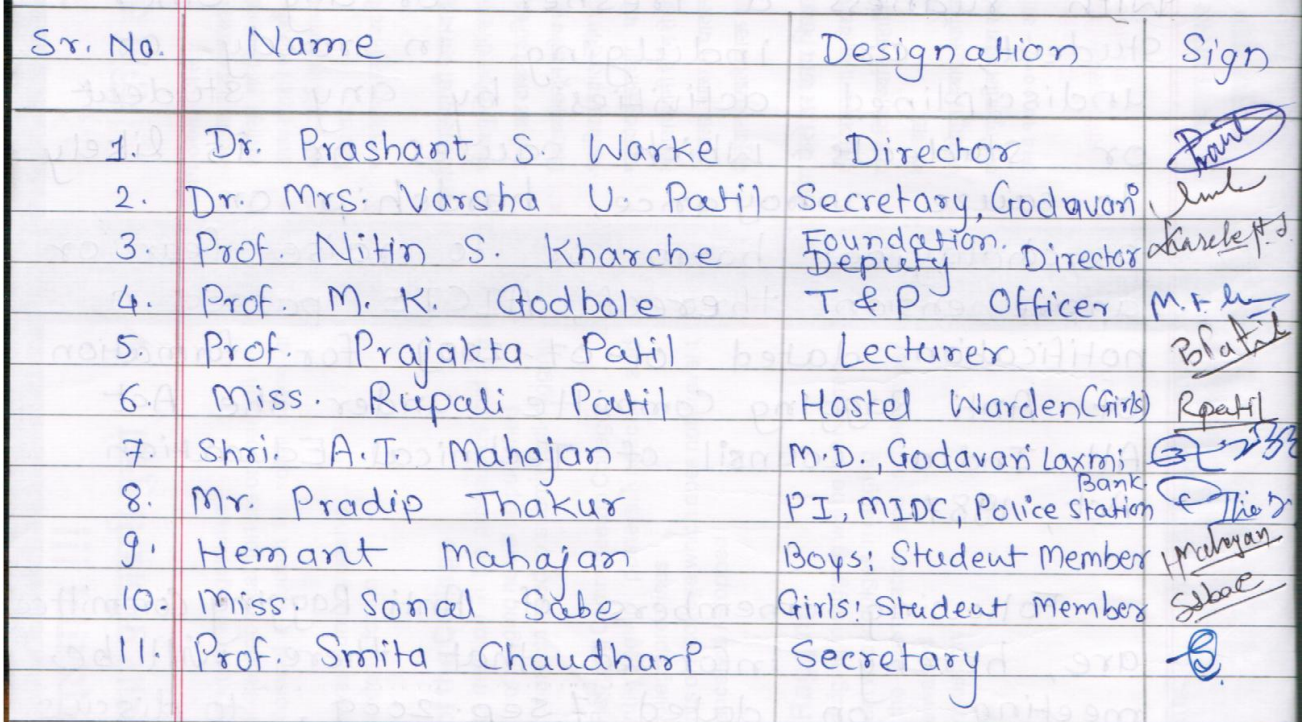 Sr. No. Name Designation Sign
1. Dr. Prashant S. Warke Director
2. Dr. Mrs. Varsha U. Patil Secretary, Godavari
Foundation.
3. Prof. Nitin S. Kharche Deputy Director
4. Prof. M. K. Godbole T & P. Officer
5. Prof. Prajakta Patil Lecturer BPatil
6. Miss. Rupali Patil Hostel Warden (Girls) Rpatil
7. Shri. A.T. Mahajan M.D., Godavari Laxmi
Bank
8. Mr. Pradip Thakur PI, MIDC, Police Station
9. Hemant Mahajan Boys: Student Member Mahajan
10. Miss. Sonal Sabe Girls: Student Member
11. Prof. Smita Chaudhari Secretary